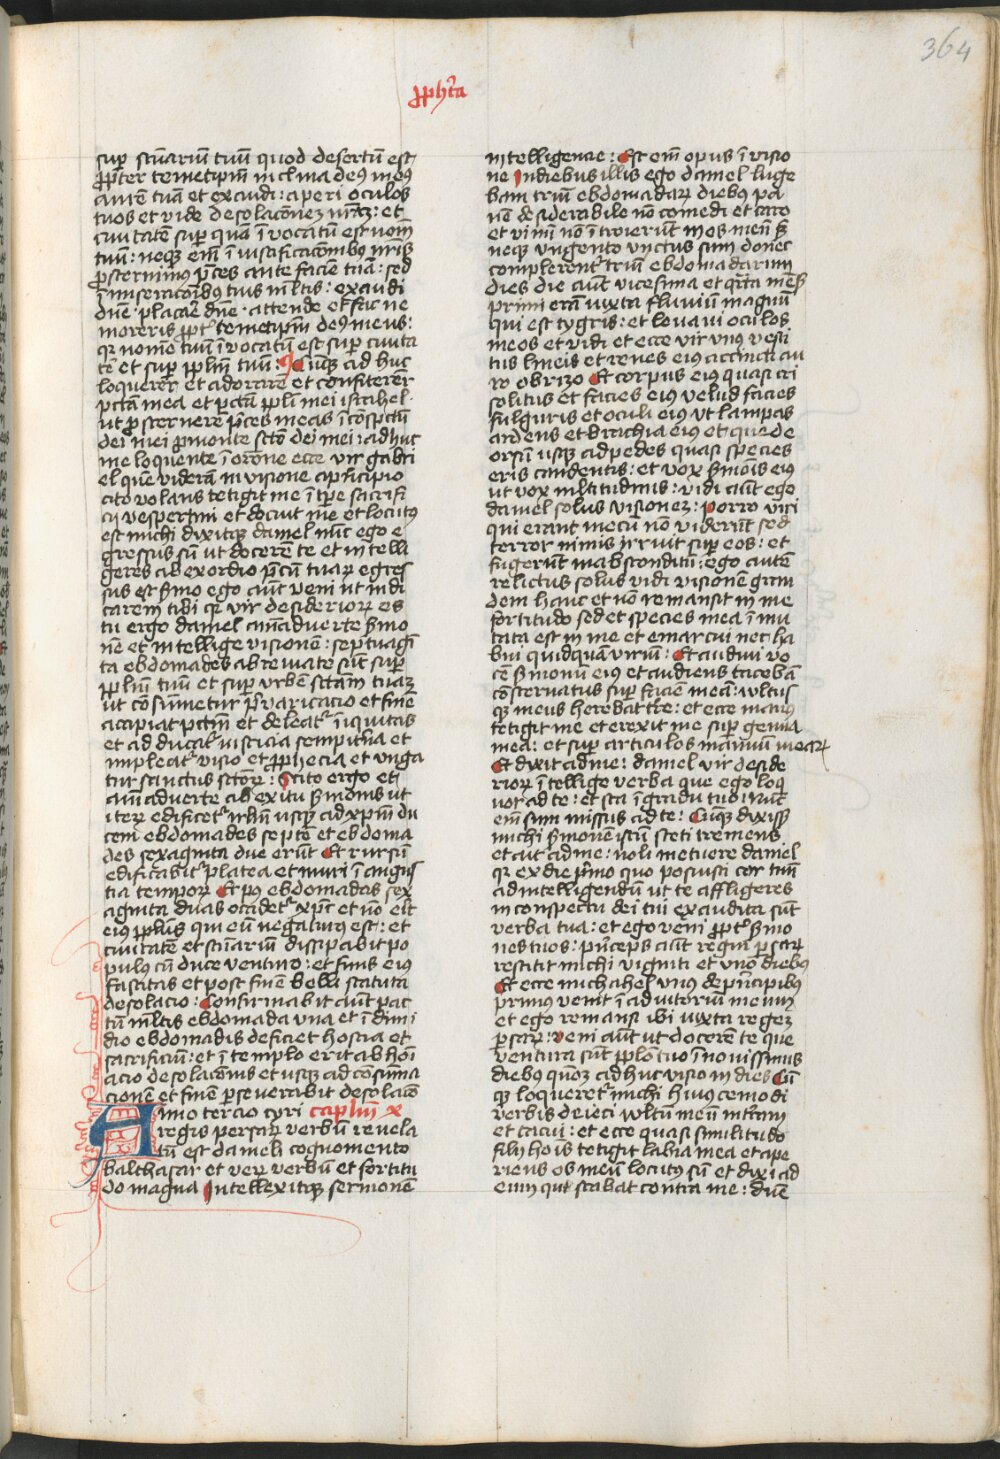 364
ꝓph̄ta
sup̲ scūariū tuū quod desertū est
ꝓpter temetip̄m inclina deꝰ meꝰ
aurē tuā et exaudi : aperi oculos
tuos et vide desolacōneȝ nr̄aȝ : et
ciuitatē sup̲ quā īvocatū est nom̄
tuū : neqꝫ em̄ ī iustificacōnibꝰ nr̄is
ꝓsternimꝰ p̄ces ante faciē tuā : sed
ī miseracōibꝰ tuis ml̄tis : exaudi
dn̄e · placare dn̄e · attende et fac ne
moreris ꝓpt᷒ temetip̄m deꝰ meus :
qr nomē tuū īvocatū est sup̲ ciuita
tē et sup̲ ppl̄m tuū : Cūqꝫ ad huc
loquerer et adorarē et confiterer
pctā mea et pctā ppl̄i mei israhel ·
ut ꝓsternere p̄ces meas ī cōspctū
dei mei ꝓ monte sctō dei mei : adhuc
me loquente ī orōne ecce vir gabri
el quē viderā in visione a pn̄cipio
cito volans tetigit me ī tp̄e sacrifi
cij vespertini et docuit me et locutꝰ
est michi dixitqꝫ daniel nūc ego e
gressus sū ut docerē te et intelli
geres ab exordio p̄cū tuaꝝ egres
sus est s̄mo ego aūt veni ut indi
carem tibi qr vir desiderioꝝ es
tu ergo daniel aīaduerte s̄mo
nē et intellige visionē : septuagī
ta ebdomades abreuiate sūt sup̲
ppl̄m tuū et sup̲ vrbē sctām tuaȝ
ut cōsūmetur p̄varicacio et finē
accipiat pctm̄ et deleat᷒ īiquitas
et adducat᷒ iusticia sempit̄na et
impleat᷒ visio et ꝓphecia et vnga
tur sanctus sctōꝝ : Scito ergo et
aīaduerte ab exitu s̄monis ut
iteꝝ edificet᷒ irl̄m usqꝫ ad xp̄m du
cem ebdomades septē et ebdoma
des sexaginta due erūt Et rursū
edificabit᷒ platea et muri ī angus
tia tempoꝝ Et pꝰ ebdomadas sex
aginta duas occidet᷒ xp̄c et nō erit
eiꝰ ppl̄us qui eū negaturꝰ est : et
ciuitatē et scūariū dissipabit po
pulꝰ cū duce venturo : et finis eiꝰ
vastitas et post finē belli statuta
desolacio : Confirmabit aūt pac
tū ml̄tis ebdomada vna et ī dimi
dio ebdomadis deficiet hostia et
sacrificiū : et ī templo erit abhoī
acio desolacōnis et usqꝫ ad cōsūma
cionē et finē ꝑseuerabit desolacō
Anno tercio cyri capl̄m x
regis persaꝝ verbū reuela
tū est danieli cognomento
balthasar et veꝝ verbū et fortitu
do magna Intellexitqꝫ sermonē
intelligencie : Est em̄ opus ī visio
ne In diebus illis ego daniel luge
bam triū ebdomadaꝝ diebus pa
nē desiderabile nō comedi et caro
et vinū nō ītroierūt in os meū s̄
neqꝫ vngento vnctus sum donec
complerent᷒ triū ebdomadarum
dies die aūt vicesima et qrta mēs̄
primi erā iuxta fluviū magnū
qui est tygris : et levavi oculos
meos et vidi et ecce vir vnꝰ vesti
tus lineis et renes eiꝰ accincti au
ro obrizo Et corpus eiꝰ quasi cri
solitus et facies eiꝰ velud facies
fulguris et oculi eiꝰ ut lampas
ardens et brachia eiꝰ et que de
orsū usqꝫ ad pedes quasi species
eris candentis : et vox s̄mōis eiꝰ
ut vox ml̄titudinis : vidi aūt ego
daniel solus visioneȝ : porro viri
qui erant mecū nō viderūt sed
terror nimis irruit sup̲ eos : et
fugerūt in absconditū : ego autē
relictus solus vidi visionē gran
dem hanc et nō remansit in me
fortitudo sed et species mea īmu
tata est in me et emarcui nec ha
bui quidquā viriū : Et audiui vo
cē s̄monū eiꝰ et audiens iacebā
cōsternatus sup̲ faciē meā : vultus
qꝫ meus herebat tr̄e : et ecce manꝰ
tetigit me et erexit me sup̲ genua
mea : et sup̲ articulos manuū meaꝝ
Et dixit ad me : daniel vir deside
rioꝝ ītellige verba que ego loq
uor ad te : et sta ī gradu tuo nūc
em̄ sum missus ad te : Cūqꝫ dixiss̄
michi s̄monē istū steti tremens
et ait ad me : noli metuere daniel
qr ex die p̄mo quo posuisti cor tuū
ad intelligendū ut te affligeres
in conspectu dei tui exaudita sūt
verba tua : et ego veni ꝓpt᷒ s̄mo
nes tuos : pn̄ceps aūt regni ꝑsaꝝ
restitit michi viginti et vno diebꝰ
Et ecce michahel vnꝰ de pn̄cipibꝰ
primis venit ī adiutoriū meum
et ego remansi ibi iuxta regeȝ
ꝑsaꝝ : veni aūt ut docerē te que
ventura sūt ppl̄o tuo ī nouissimis
diebꝰ quoȝ adhuc visio in dies Cū
qꝫ loqueret᷒ michi huiuscemodi
verbis deieci vultū meū in trām
et tacui : et ecce quasi similitudo
filij hoīs tetigit labia mea et ape
riens os meū locutꝰ sū et dixi ad
eum qui stabat contra me : dn̄e